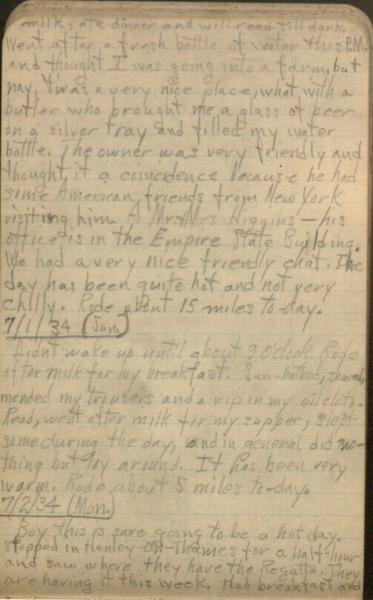 milk, ate dinner and will read till dark.
Went after a fresh bottle of water this P.M.
and thought I was going into a farm, but
nay, 'twas a very nice place, what with a
butler who brought me a glass of beer
on a silver tray and filled my water
bottle. The owner was very friendly and
thought it a coincidence because he had
some American friends from New York
visiting him. A Mr & Mrs Higgins — his
office is in the Empire State Building.
We had a very nice friendly chat. The
day has been quite hot and not very
chilly. Rode about 15 miles to-day.
7/1/34 (Sun.)
Didn't wake up until about 9 o'clock. Rode
after milk for my breakfast. Sun-bathed, shaved,
mended my trousers and a rip in my oilcloth.
Read, went after milk for my supper, slept
some during the day, and in general did no-
thing but lay around. It has been very
warm. Rode about 5 miles to-day.
7/2/34 (Mon.)
Boy this is sure going to be a hot day.
Stopped in Henley-On-Thames for a half-hour
and saw where they have the Regatta. They
are having it this week. Had breakfast and